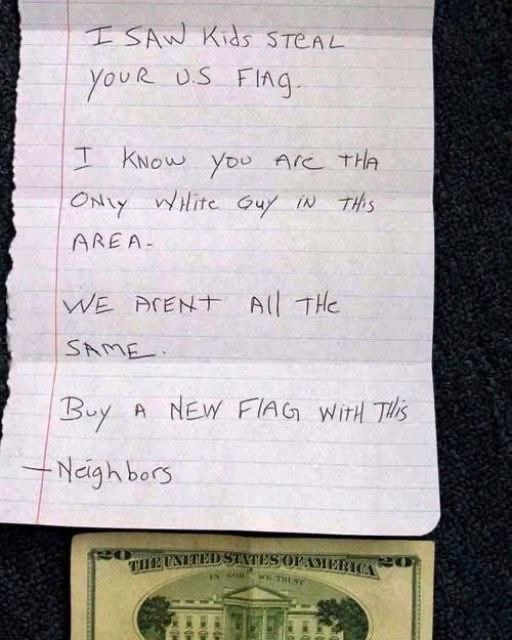 I SAW Kids STEAL
YOUR U.S FlAg.
I KNOW YOU ARE THA
ONly WHite Guy iN THis
AREA-
WE ArENT All THe
SAME.
Buy A NEW FlAG WITH THis
- Neighbors
20 THE UNITED STATES OF AMERICA 20
IN GOD WE TRUST